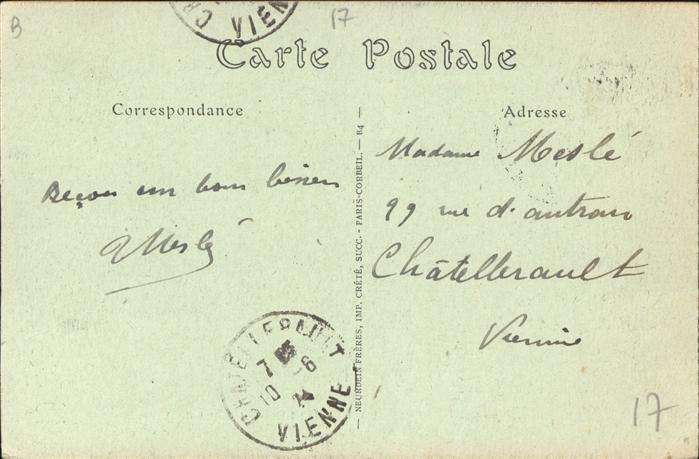 B
17
VIENNE
Carte Postale
Correspondance
Adresse
Reçois un bon baiser
Meslé
Madame Meslé
99 rue d'antran
Châtellerault
Vienne
NEURDEIN FRÈRES, IMP. CRÉTÉ, SUCC. - PARIS-CORBEIL. — B4 —
CHATELLERAULT
7 6
10
VIENNE
17